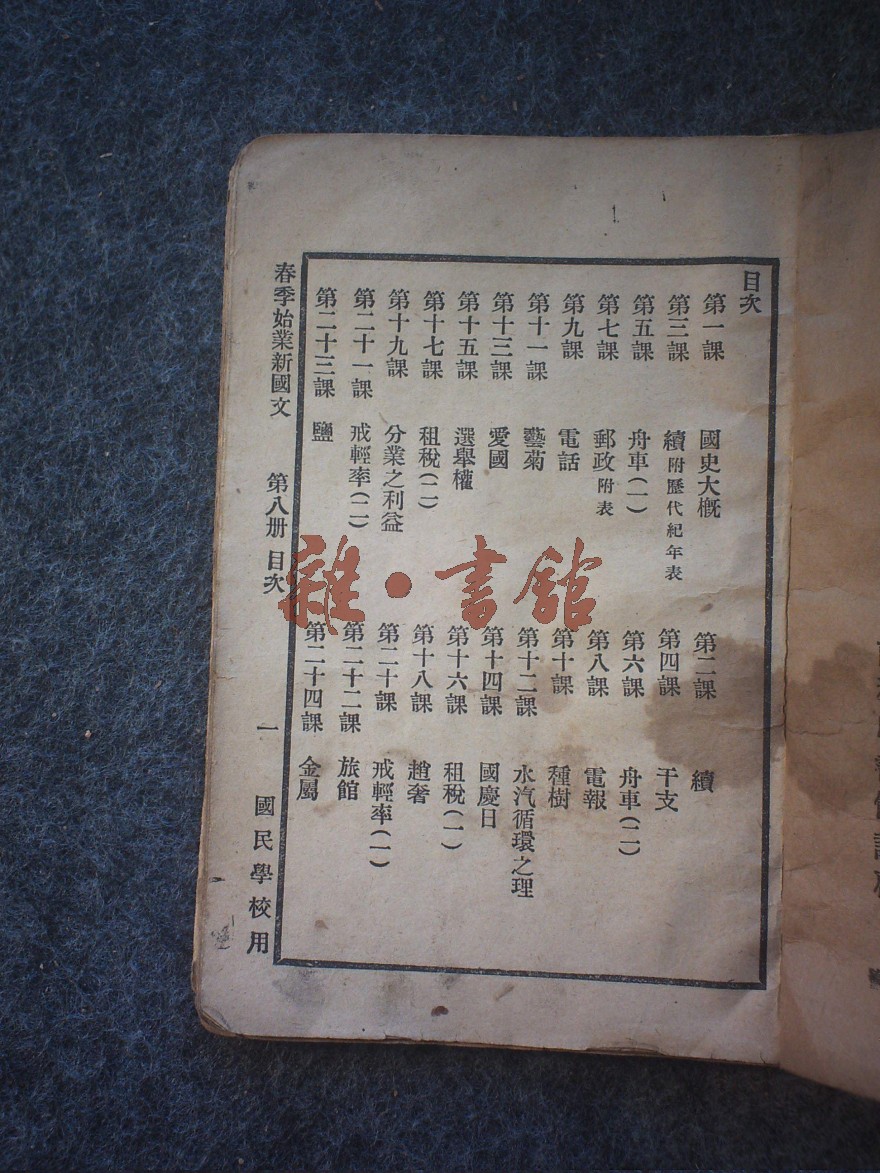 目次
第一課 國史大概
第二課 續
第三課 續附歷代紀年表
第四課 干支
第五課 舟車(一)
第六課 舟車(二)
第七課 郵政附表
第八課 電報
第九課 電話
第十課 種樹
第十一課 藝菊
第十二課 水汽循環之理
第十三課 愛國
第十四課 國慶日
第十五課 選舉權
第十六課 租稅(一)
第十七課 租稅(二)
第十八課 趙奢
第十九課 分業之利益
第二十課 戒輕率(一)
第二十一課 戒輕率(二)
第二十二課 旅館
第二十三課 鹽
第二十四課 金屬
春季始業新國文 第八册 目次 一 國民學校用
雜·書館